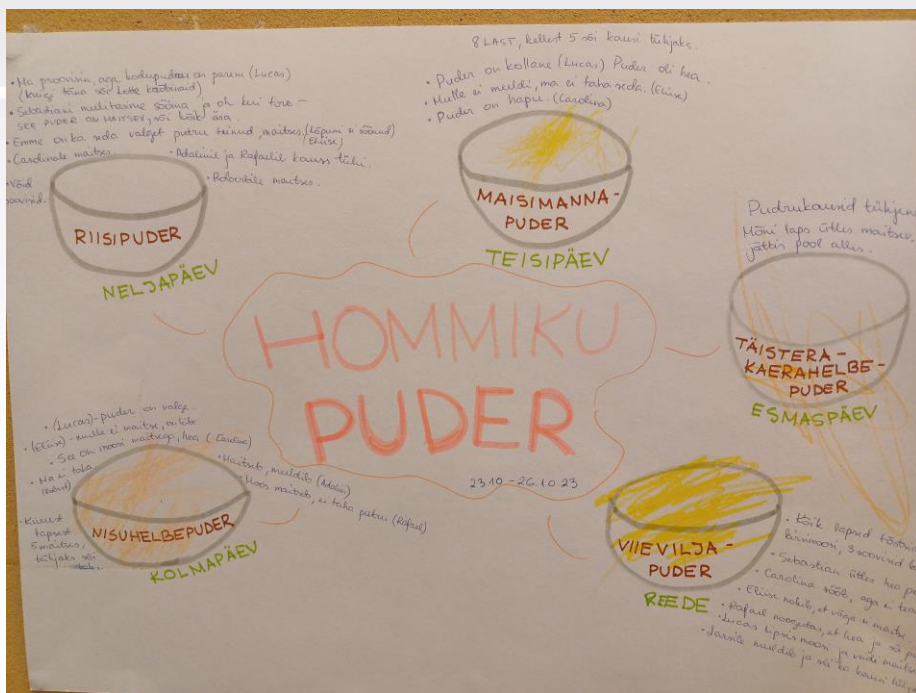 • Ma proovisin, aga kodupuder on parem (Lucas)
• Sebastiani meelitasime sööma ja oh kui tore –
SEE PUDER ON MAITSEV, sõi kõik ära.
• Emme on ka seda valget putru teinud, maitses. (Lõpuni ei söönud)
(Eliise)
• Carolinale maitses.
• Adelinil ja Rafaelil kauss tühi.
• Robertile maitses.
• Võid
soovisid.
RIISIPUDER
NELJAPÄEV
8 LAST, kellest 5 sõi kausi tühjaks.
• Puder on kollane (Lucas) Puder oli hea.
• Mulle ei meeldi, ma ei taha seda. (Eliise)
• Puder on hapu. (Carolina)
MAISIMANNA-
PUDER
TEISIPÄEV
Pudrukausid tühjen
Mõni laps ütles maitsev.
jättis pool alles.
TÄISTERA-
KAERAHELBE-
PUDER
ESMASPÄEV
HOMMIKU
PUDER
23.10 – 26.10.23
• (Lucas) - puder on valge.
• (Eliise) - mulle ei maitse,
• See on moosi maitsega, hea (Caroline)
• Ma ei taha
• Maitseb, meeldib (Adelin)
• Moos maitseb, ei taha putru (Rafael)
• Kuuest
lapsest
5 maitses,
tühjaks sõi
NISUHELBEPUDER
KOLMAPÄEV
VIIEVILJA-
PUDER
REEDE
• Kõik lapsed tõstsid
kirsimoosi, 3 soovisid
• Sebastian ütles hea
• Carolina sööb, aga ei
• Eliise nokib, et väga ei maitse
• Rafael noogutas, et hea ja sõi
• Lucas lipsis moosi ja veidi
meeldib ja sõi ka kausi